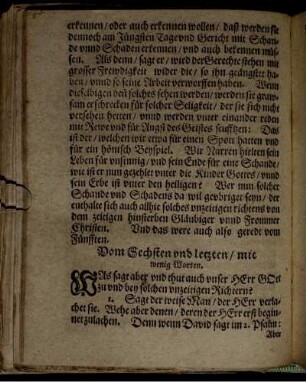 erkennen / oder auch erkennen wollen / daß werden sie
dennoch am Jüngsten Tage vnd Gericht mit Schan-
de vnnd Schaden erkennen / vnd auch bekennen müs-
sen. Als denn / sagt er / wird der Gerechte stehen mit
grosser Frewdigkeit wider die / so ihn geängstet ha-
ben / vnnd so seine Arbeit verworffen haben. Wenn
dieselbigen denn solches sehen werden / werden sie graw-
sam erschrecken für solcher Seligkeit / der sie sich nicht
versehen hetten / vnnd werden vnter einander reden
mit Rewe vnd für Angst des Geistes seufftzen: Das
ist der / welchen wir etwa für einen Spott hatten vnd
für ein hönisch Beyspiel. Wir Narren hielten sein
Leben für vnsinnig / vnd sein Ende für eine Schande /
wie ist er nun gezehlet vnter die Kinder Gottes / vnnd
sein Erbe ist vnter den heiligen? Wer nun solcher
Schande vnd Schadens da wil gewbriger seyn / der
enthalte sich auch allhie solches vnzeitigen richtens von
dem zeitigen hinsterben Gläubiger vnnd Frommer
Christen. Vnd das were auch also geredt vom
Fünfften.
Vom Sechsten vnd letzten / mit
wenig Worten.
WAs sagt aber vnd thut auch vnser HErr GOtt
zu vnd bey solchen vnzeitigen Richtern?
1. Sagt der weise Man / der HErr verla-
chet sie. Wehe aber denen / deren der HErr erst begin-
net zulachen. Denn wenn David sagt im 2. Psalm:
Aber